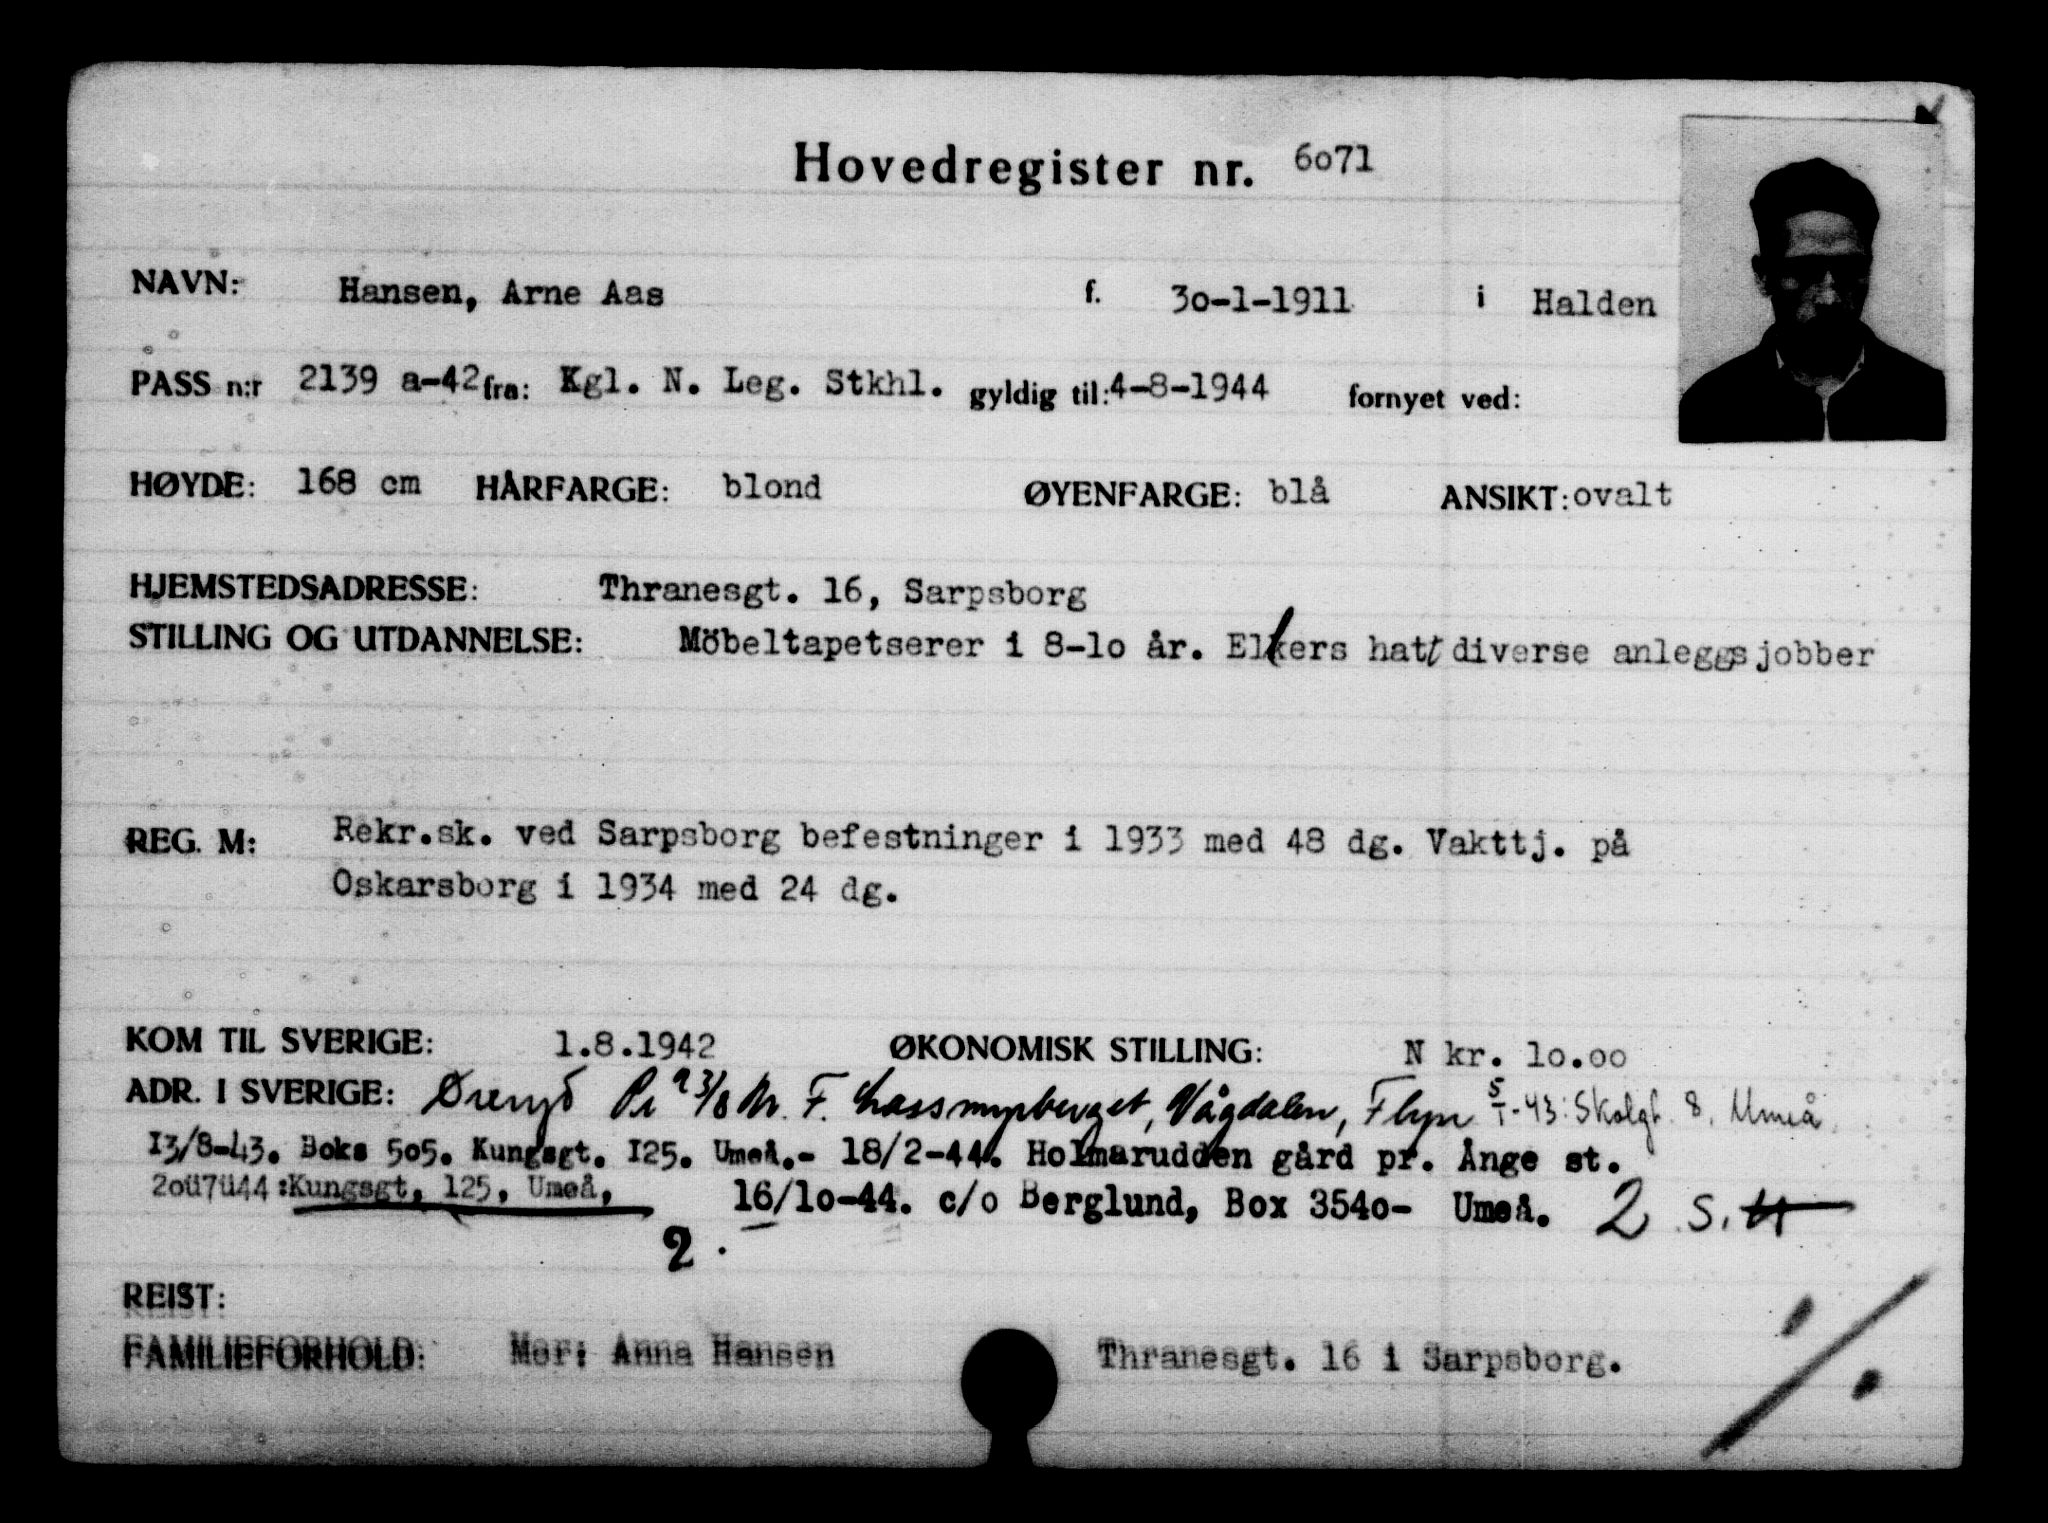 Hovedregister nr. 6o71
NAVN: Hansen, Arne Aas f. 3o-1-1911 i Halden
PASS n:r 2139 a-42 fra: Kgl. N. Leg. Stkhl. gyldig til: 4-8-1944 fornyet ved:
HØYDE: 168 cm HÅRFARGE: blond ØYENFARGE: blå ANSIKT: ovalt
HJEMSTEDSADRESSE: Thranesgt. 16, Sarpsborg
STILLING OG UTDANNELSE: Möbeltapetserer i 8-lo år. Ellers hatt diverse anleggsjobber
REG. M: Rekr.sk. ved Sarpsborg befestninger i 1933 med 48 dg. Vakttj. på
Oskarsborg i 1934 med 24 dg.
KOM TIL SVERIGE: 1.8.1942 ØKONOMISK STILLING: N kr. lo.oo
ADR. I SVERIGE: F. Lassmyrberget, Vågdalen, Flyn 5/1-43: Skolgt. 8, Umeå
I3/8-43. Boks 5o5. Kungsgt. I25. Umeå.- 18/2-44. Holmarudden gård pr. Ånge st.
2oü7ü44 :Kungsgt, 125, Umeå, 16/lo-44. c/o Berglund, Box 354o- Umeå. 2 S.
2.
REIST:
FAMILIEFORHOLD: Mor: Anna Hansen Thranesgt. 16 i Sarpsborg.